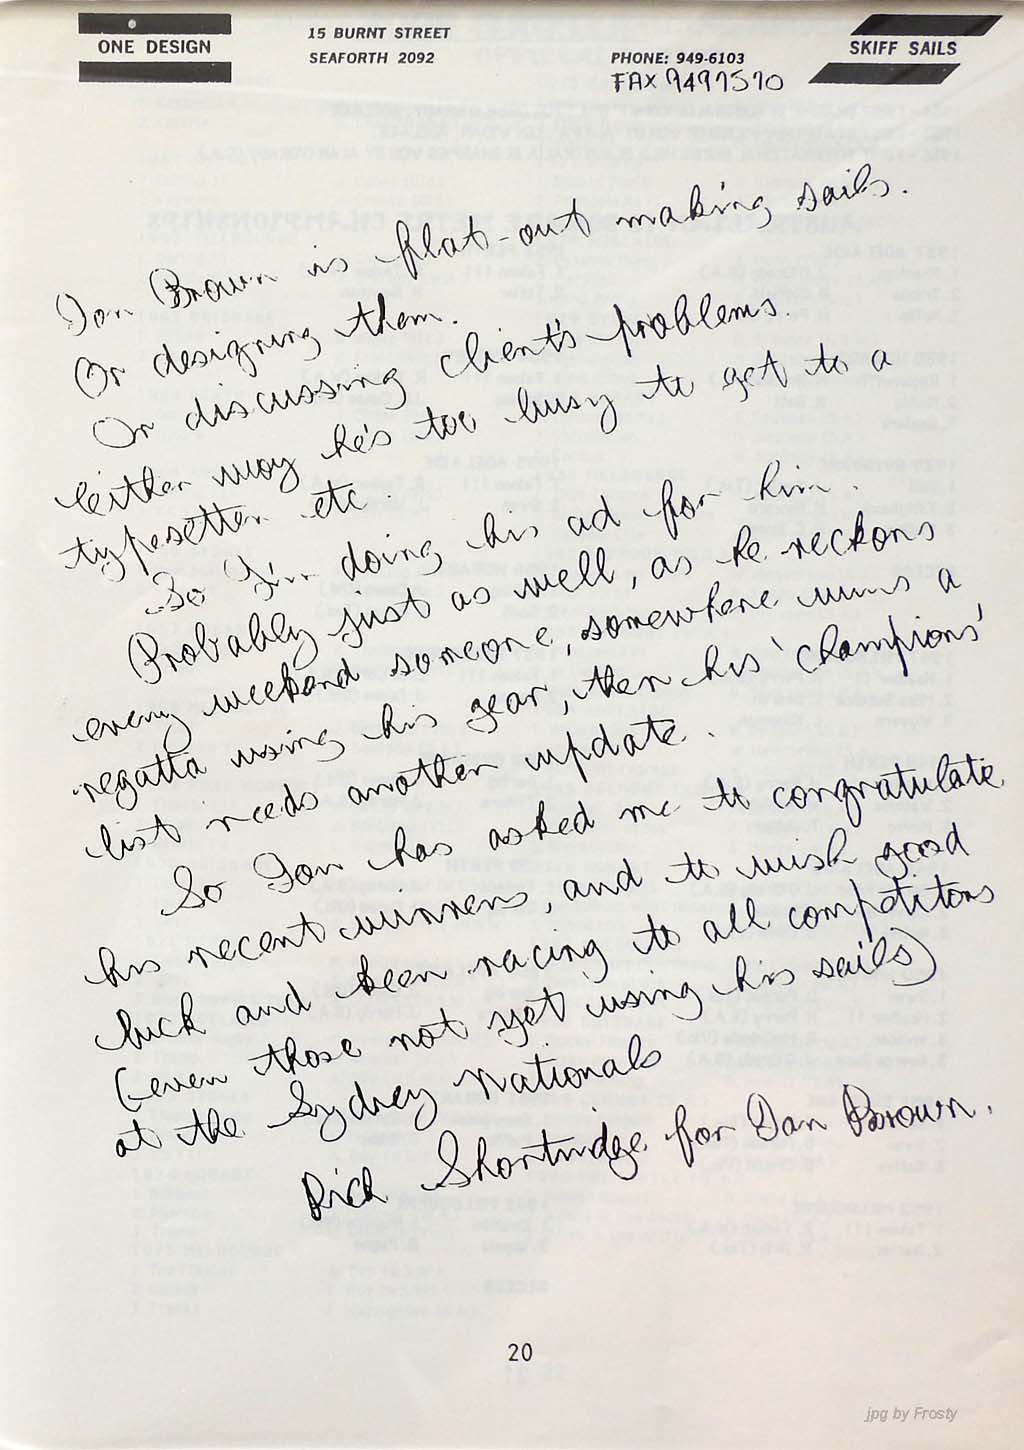 ONE DESIGN
15 BURNT STREET
SEAFORTH 2092
PHONE: 949-6103
FAX 9497570
SKIFF SAILS
Ian Brown is flat-out making sails.
Or designing them.
Or discussing client's problems.
Either way he's too busy to get to a
typesetter etc.
So I'm doing his ad for him.
Probably just as well, as he reckons
every weekend someone, somewhere wins a
regatta using his gear, then his 'champions'
list needs another update.
So Ian has asked me to congratulate
his recent winners, and to wish good
luck and keen racing to all competitors
(even those not yet using his sails)
at the Sydney Nationals
Rick Shortridge for Ian Brown.
20
jpg by Frosty